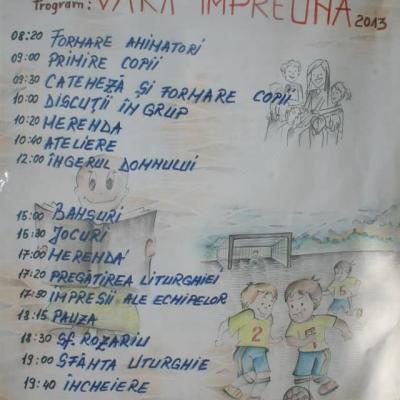 Program: VARA ÎMPREUNĂ 2013
08:20 FORMARE ANIMATORI
09:00 PRIMIRE COPII
09:30 CATEHEZĂ ȘI FORMARE COPII
10:00 DISCUȚII ÎN GRUP
10:20 MERENDA
10:40 ATELIERE
12:00 ÎNGERUL DOMNULUI
15:00 BANSURI
15:30 JOCURI
17:00 MERENDA
17:20 PREGĂTIREA LITURGHIEI
17:50 IMPRESII ALE ECHIPELOR
18:15 PAUZA
18:30 SF. ROZARIU
19:00 SFÂNTA LITURGHIE
19:40 ÎNCHEIERE
2
5